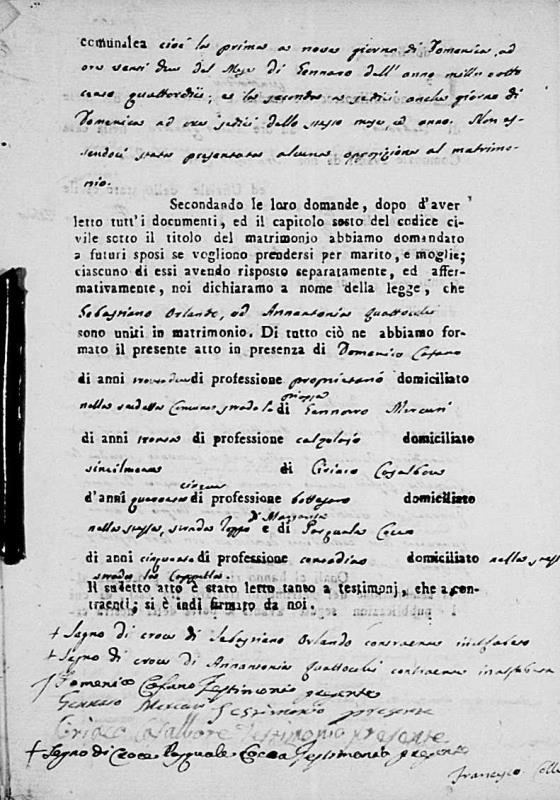 comunale cioè la prima a nove giorno di Domenica, ad
ore venti due del Mese di Gennaro dell'anno mille otto
cento quattordici; e la seconda a sedici anche giorno di
Domenica ad ore sedici dello stesso mese, ed anno. Non es-
sendoci stata presentata alcuna opposizione al matrimo-
nio.
Secondando le loro domande, dopo d'aver
letto tutt'i documenti, ed il capitolo sesto del codice ci-
vile sotto il titolo del matrimonio abbiamo domandato
a futuri sposi se vogliono prendersi per marito, e moglie;
ciascuno di essi avendo risposto separatamente, ed affer-
mativamente, noi dichiaramo a nome della legge, che
Sebastiano Orlando, ed Annantonia Quattocchi
sono uniti in matrimonio. Di tutto ciò ne abbiamo for-
mato il presente atto in presenza di Domenico Cafano
di anni di professione proprietario domiciliato
nella sudetta Comune strada la di Gennaro Mercuri
di anni trenta di professione calzolajo domiciliato
similmente di Ciriaco Casalbore
d'anni quaranta cinque di professione bottegaro domiciliato
nella stessa, strada e di Pasquale Cocca
di anni cinquanta di professione contadino domiciliato nella stessa
strada la Cappella.
Il sudetto atto è stato letto tanto a testimonj, che a con-
traenti; si è indi firmato da noi.
+ Segno di croce di Sebastiano Orlando contraente inalfabeto
+ Segno di croce di Annantonia Quattocchi contraente inalfabeta
Domenico Cafano Testimonio presente
Gennaro Mercuri Testimonio presente
Ciriaco Casalbore Testimonio presente
+ Segno di Croce Pasquale Cocca Testimonio presente
Francesco